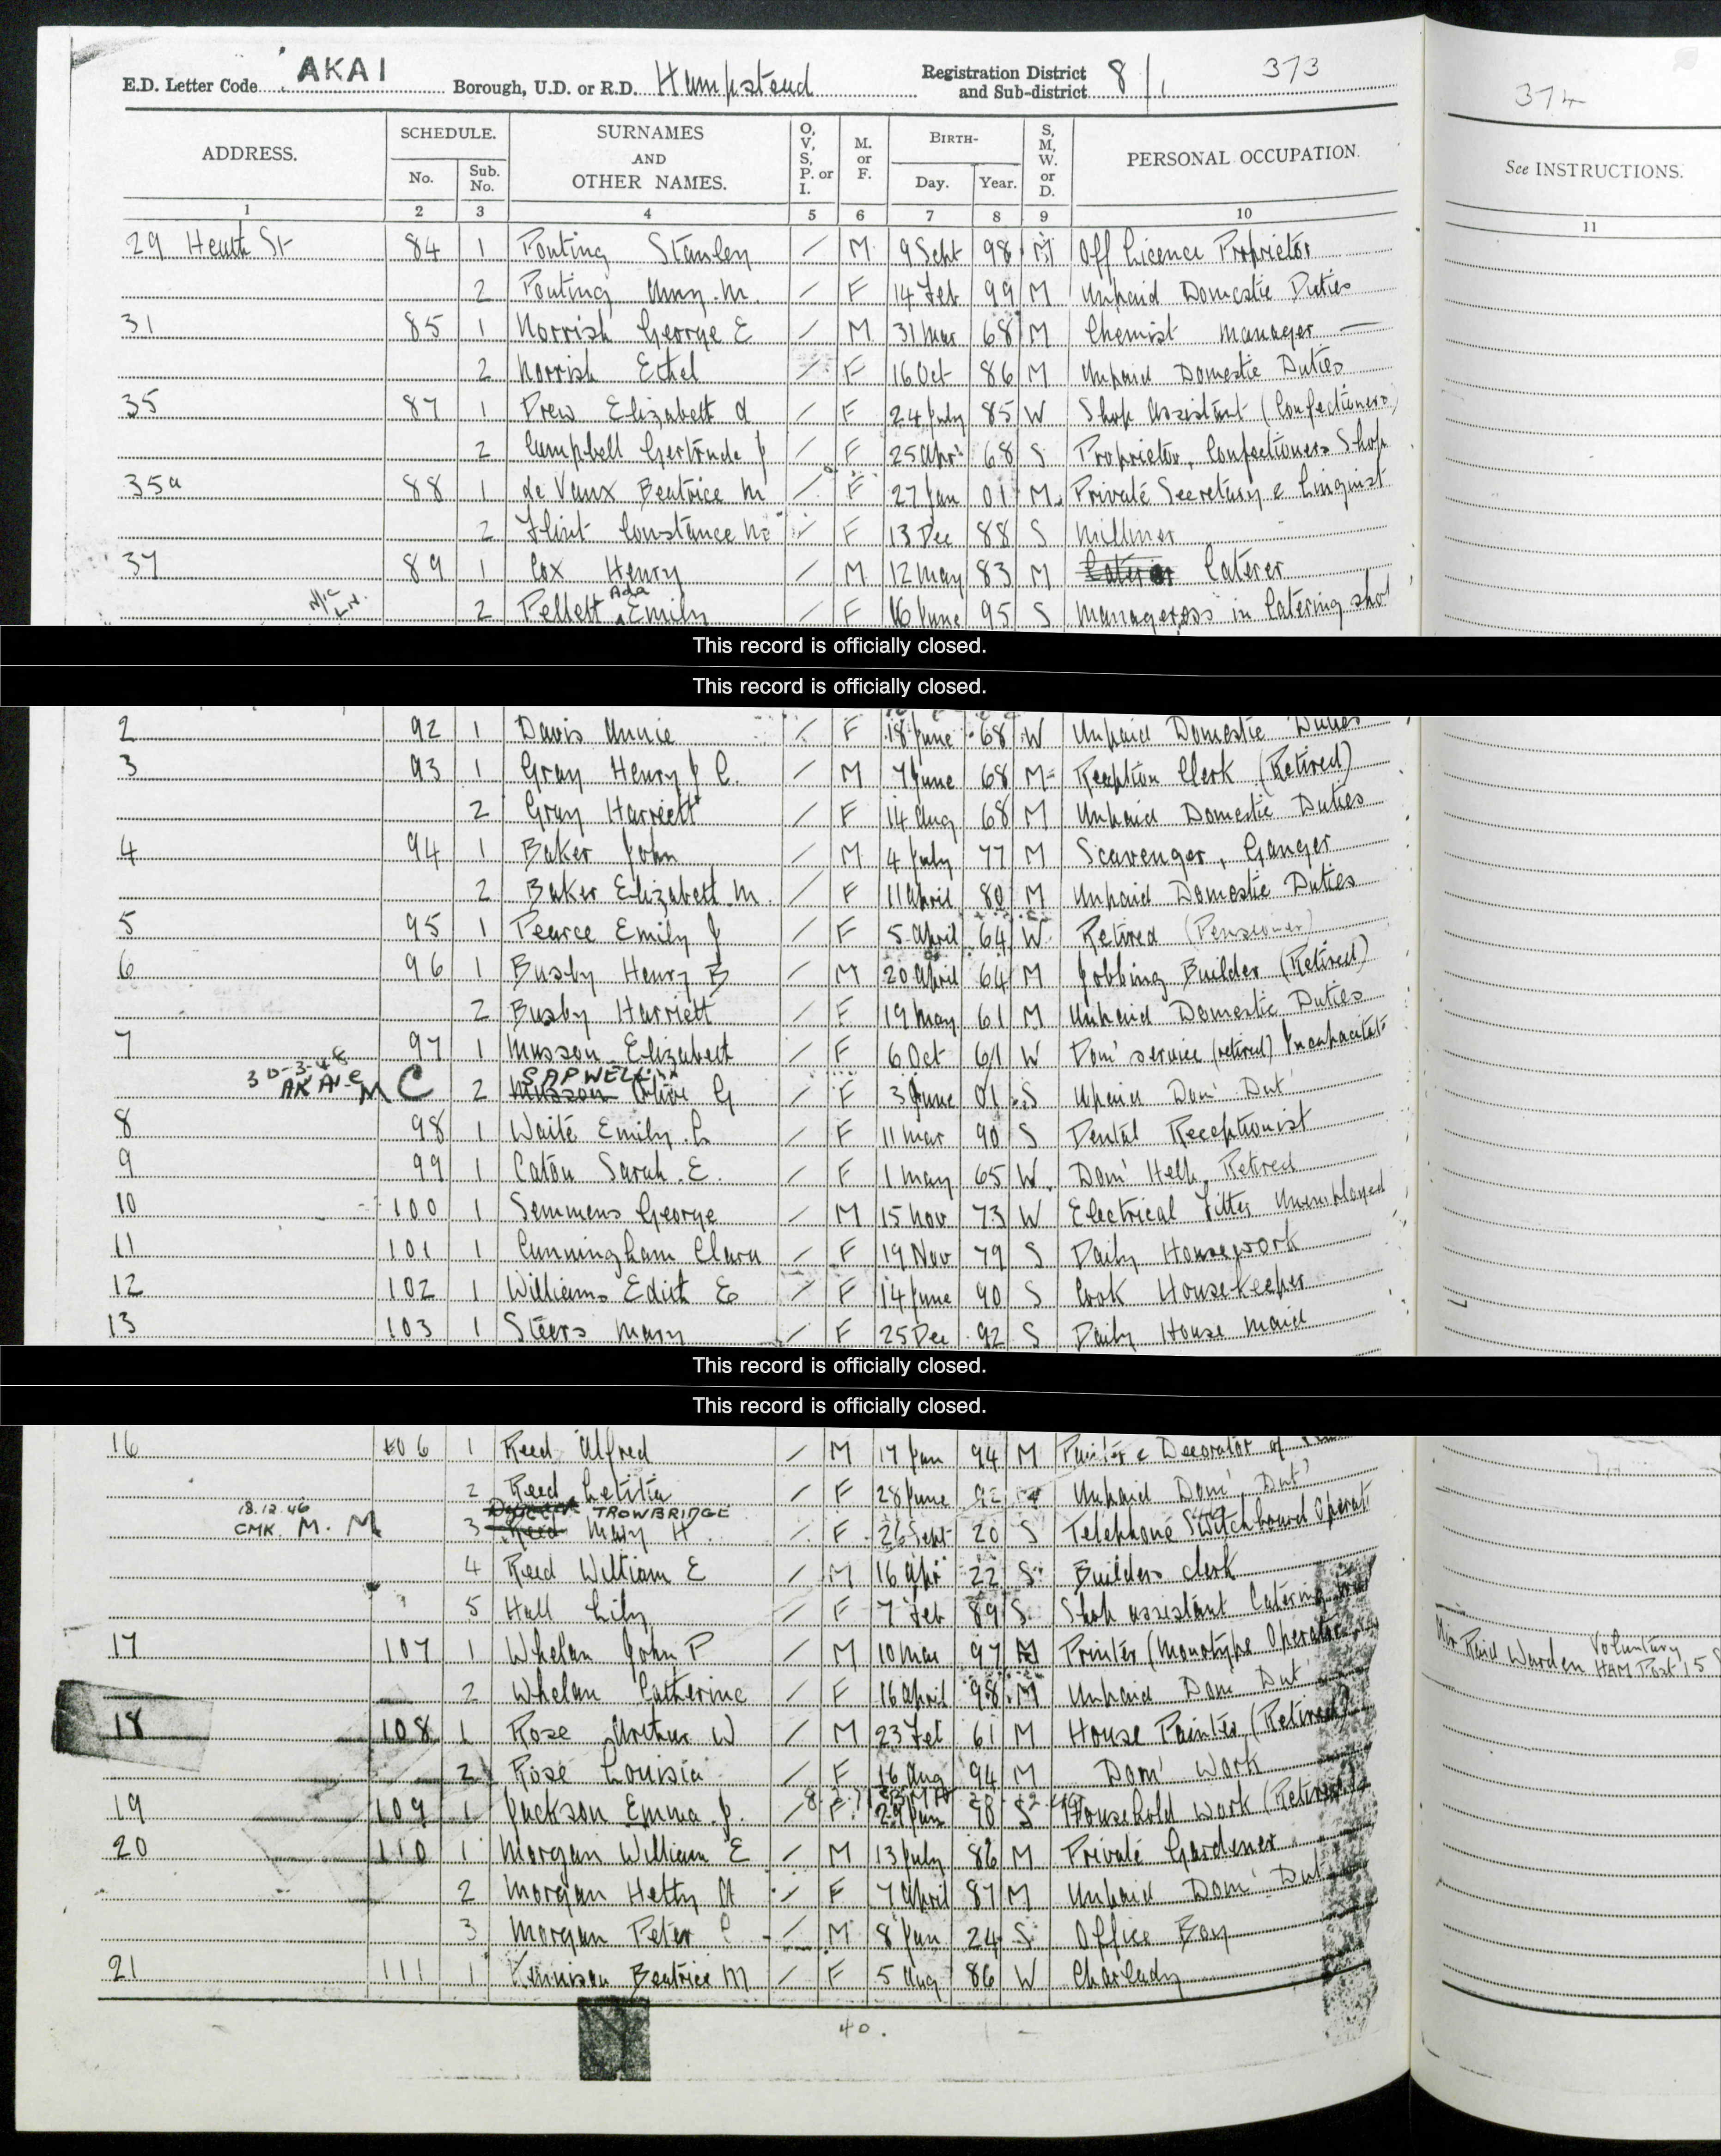 E.D. Letter Code AKAI Borough, U.D. or R.D. Hampstead Registration District and Sub-district 8/1 373
374
ADDRESS. SCHEDULE. No. Sub. No. SURNAMES AND OTHER NAMES. O, V, S, P. or I. M. or F. BIRTH- Day. Year. S, M, W. or D. PERSONAL OCCUPATION. See INSTRUCTIONS.
1 2 3 4 5 6 7 8 9 10 11
29 Heath St 84 1 Ponting Stanley / M 9 Sept 98 M Off Licence Proprietor
2 Ponting Amy M. / F 14 Feb 99 M Unpaid Domestic Duties
31 85 1 Norrish George E / M 31 Mar 68 M Chemist Manager —
2 Norrish Ethel / F 16 Oct 86 M Unpaid Domestic Duties
35 87 1 Drew Elizabeth A / F 24 July 85 W Shop Assistant (Confectioners)
2 Campbell Gertrude J / F 25 Apr 68 S Proprietor, Confectioners Shop
35a 88 1 de Vaux Beatrice M / F 27 Jan 01 M Private Secretary & Linguist
2 Flint Constance / F 13 Dec 88 S Milliner
37 89 1 Cox Henry / M 12 May 83 M Caterer Caterer
N/C L.N. 2 Pellett Ada Emily / F 16 June 95 S Manageress in Catering sho
This record is officially closed.
This record is officially closed.
2 92 1 Davis Annie / F 18 June 68 W Unpaid Domestic Duties
3 93 1 Gray Henry J C. / M 7 June 68 M Reception Clerk (Retired)
2 Gray Harriett / F 14 Aug 68 M Unpaid Domestic Duties
4 94 1 Baker John / M 4 July 77 M Scavenger, Ganger
2 Baker Elizabeth M. / F 11 April 80 M Unpaid Domestic Duties
5 95 1 Pearce Emily J / F 5 April 64 W Retired (Pensioner)
6 96 1 Busby Henry B / M 20 April 64 M Jobbing Builder (Retired)
2 Busby Harriett / F 19 May 61 M Unpaid Domestic Duties
7 97 1 Musson Elizabeth / F 6 Oct 61 W Dom' service (retired) Incapacitate
30-3-48 AKAI-e M C 2 Musson SAPWELL Olive G / F 3 June 01 S Upaid Dom' Dut'
8 98 1 Waite Emily C / F 11 Mar 90 S Dental Receptionist
9 99 1 Caton Sarah E. / F 1 May 65 W Dom' Help Retired
10 100 1 Semmens George / M 15 Nov 73 W Electrical Fitter Unemployed
11 101 1 Cunningham Clara / F 19 Nov 79 S Daily Housework
12 102 1 Williams Edith E / F 14 June 90 S Cook Housekeeper
13 103 1 Steers Mary / F 25 Dec 92 S Daily House Maid
This record is officially closed.
This record is officially closed.
16 106 1 Reed Alfred / M 17 Jan 94 M Painter & Decorator of
2 Reed Letitia / F 28 June 92 M Unpaid Dom' Dut'
18.12.46 CMK. M. M 3 Reed TROWBRIDGE Mary H / F 26 Sept 20 S Telephone Switchboard Operat
4 Reed William E / M 16 Apr 22 S Builders clerk
5 Hall Lily / F 7 Feb 89 S Shop assistant Catering
17 107 1 Whelan John P / M 10 Mar 97 M Printer (Monotype Operator Air Raid Warden Voluntary HAM Post 15
2 Whelan Catherine / F 16 April 98 M Unpaid Dom Dut'
18 108 1 Rose Arthur W / M 23 Feb 61 M House Painter (Retired)
2 Rose Louisia / F 16 Aug 94 M Dom' Work
19 109 1 Jackson Emma J. / F 29 Jan S Household Work (Retired
20 110 1 Morgan William E / M 13 July 86 M Private Gardener
2 Morgan Hetty A / F 7 April 87 M Unpaid Dom' Dut
3 Morgan Peter C / M 8 Jan 24 S Office Boy
21 111 1 Kennison Beatrice M / F 5 Aug 86 W Charlady
40.